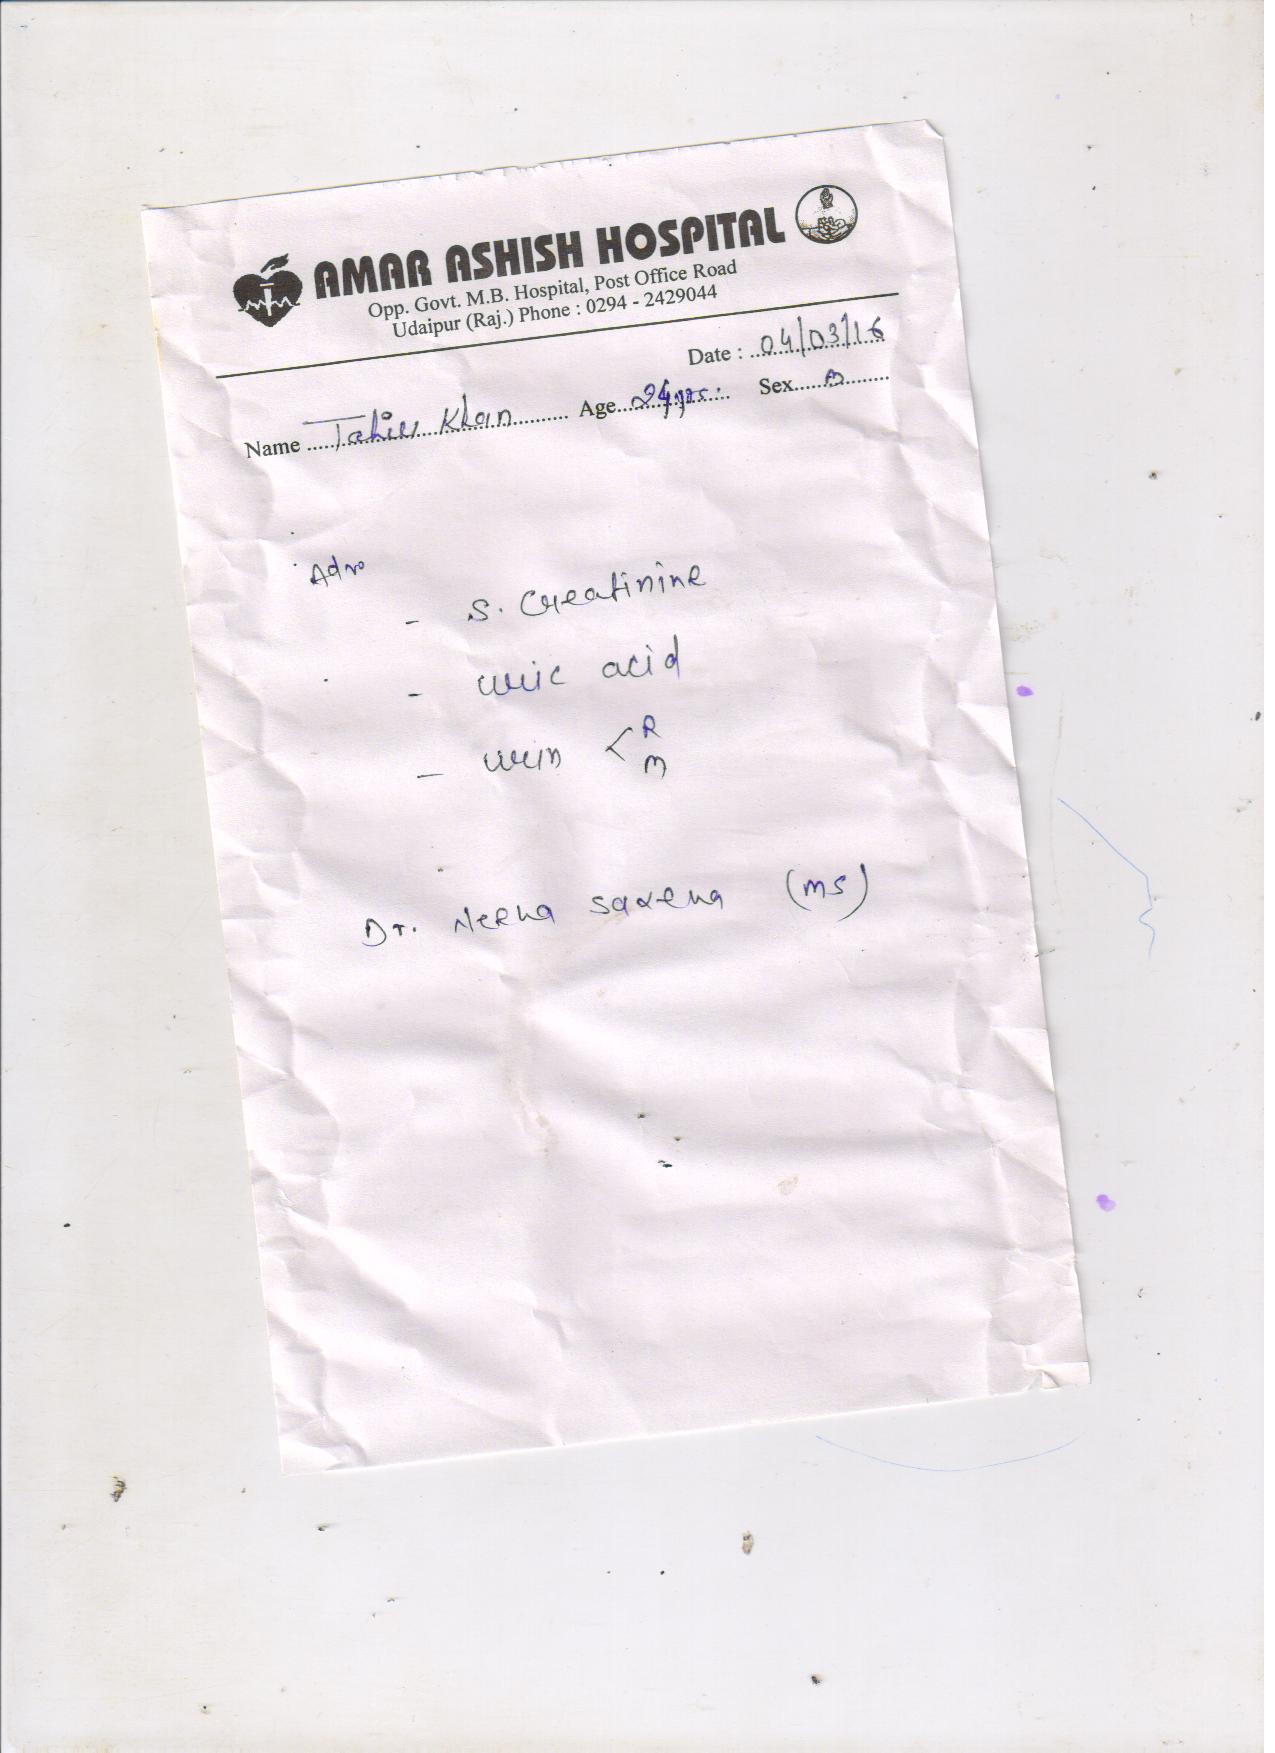 AMAR ASHISH HOSPITAL
Opp. Govt. M.B. Hospital, Post Office Road
Udaipur (Raj.) Phone : 0294 - 2429044
Date : 04/03/16
Name Tahir Khan Age 24 yrs. Sex M
Adv
- S. Creatinine
- uric acid
- urin < R
M
Dr. Neena Saxena (MS)